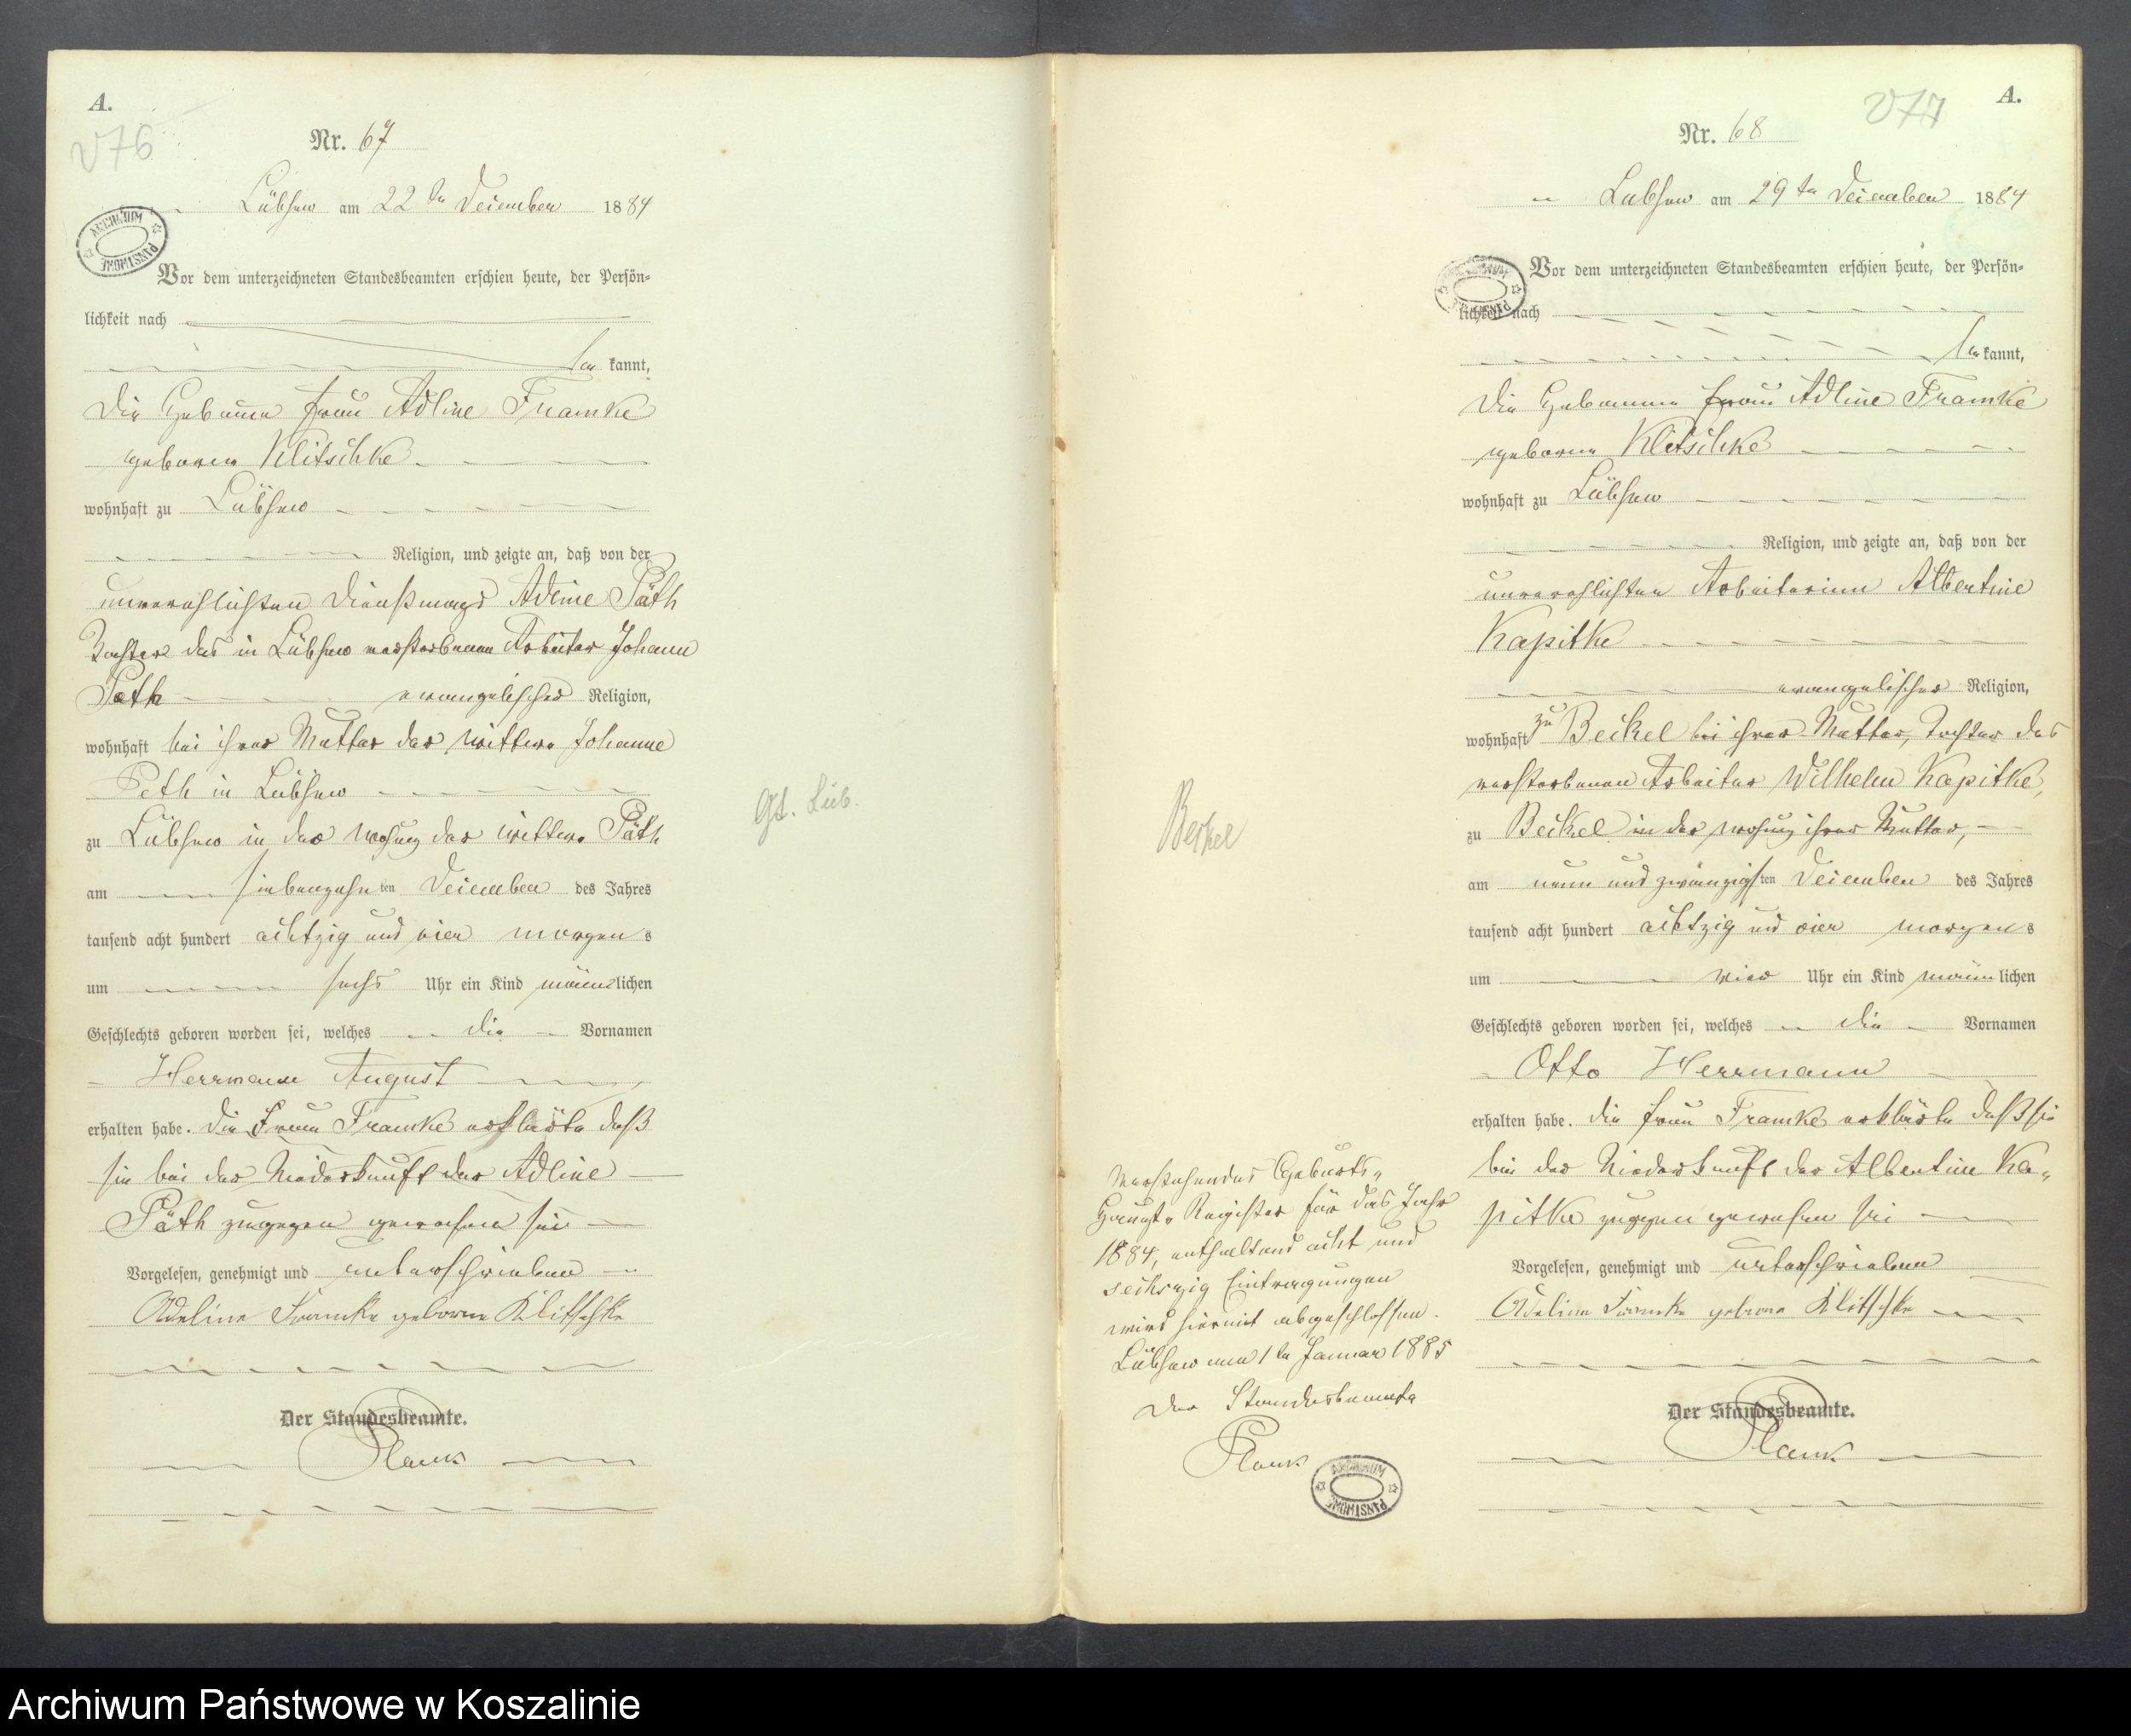 A.
V76
Nr. 67
Lübsow am 22 ten December 1884
ARCHIWUM PAŃSTWOWE
Vor dem unterzeichneten Standesbeamten erschien heute, der Persön-
lichkeit nach
be kannt,
die Hebamme Frau Adline Framke
geborne Klitschke
wohnhaft zu Lübsow
Religion, und zeigte an, daß von der
unverehlichten Dienstmagd Adeine Päth
Tochter des in Lübsow verstorbenen Arbeiter Johann
Päth evangelischer Religion,
wohnhaft bei ihrer Mutter der Wittwe Johanne
Peth in Lübsow
zu Lübsow in der Wohung der Wittwe Päth
am siebenzehn ten December des Jahres
tausend acht hundert achtzig und vier morgens
um sechs Uhr ein Kind männlichen
Geschlechts geboren worden sei, welches die Vornamen
Herrmann August
erhalten habe. die Frau Framke erklärte daß
sie bei der Niederkunft der Adline
Päth zugegen gewesen sei
Vorgelesen, genehmigt und unterschrieben
Adeline Framke geborne Klitschke
Der Standesbeamte.
Plank
Gt. Lüb.
A.
V77
Nr. 68
Lübsow am 29 ten December 1884
ARCHIWUM PAŃSTWOWE
Vor dem unterzeichneten Standesbeamten erschien heute, der Persön-
lichkeit nach
be kannt,
die Hebamme Frau Adline Framke
geborne Klitschke
wohnhaft zu Lübsow
Religion, und zeigte an, daß von der
unverehlichten Arbeiterinn Albertine
Kapitke
evangelischer Religion,
wohnhaft zu Beckel bei ihrer Mutter, Tochter des
verstorbenen Arbeiter Wilhelm Kapitke,
zu Beckel in der Wohung ihrer Mutter,
am neun und zwanzigsten December des Jahres
tausend acht hundert achtzig und vier morgens
um vier Uhr ein Kind männlichen
Geschlechts geboren worden sei, welches die Vornamen
Otto Herrmann
erhalten habe. die Frau Framke erklärte daß sie
bei der Niederkunft der Albertine Ka-
pitke zugegen gewesen sei
Vorgelesen, genehmigt und unterschrieben
Adeline Framke geborne Klitschke
Der Standesbeamte.
Plank
Beckel
Vorstehendes Geburts-
Haupt-Register für das Jahr
1884, enthaltend acht und
sechszig Eintragungen
wird hiermit abgeschlossen.
Lübsow am 1 ten Januar 1885
Der Standesbeamte
Plank
ARCHIWUM PAŃSTWOWE
Archiwum Państwowe w Koszalinie